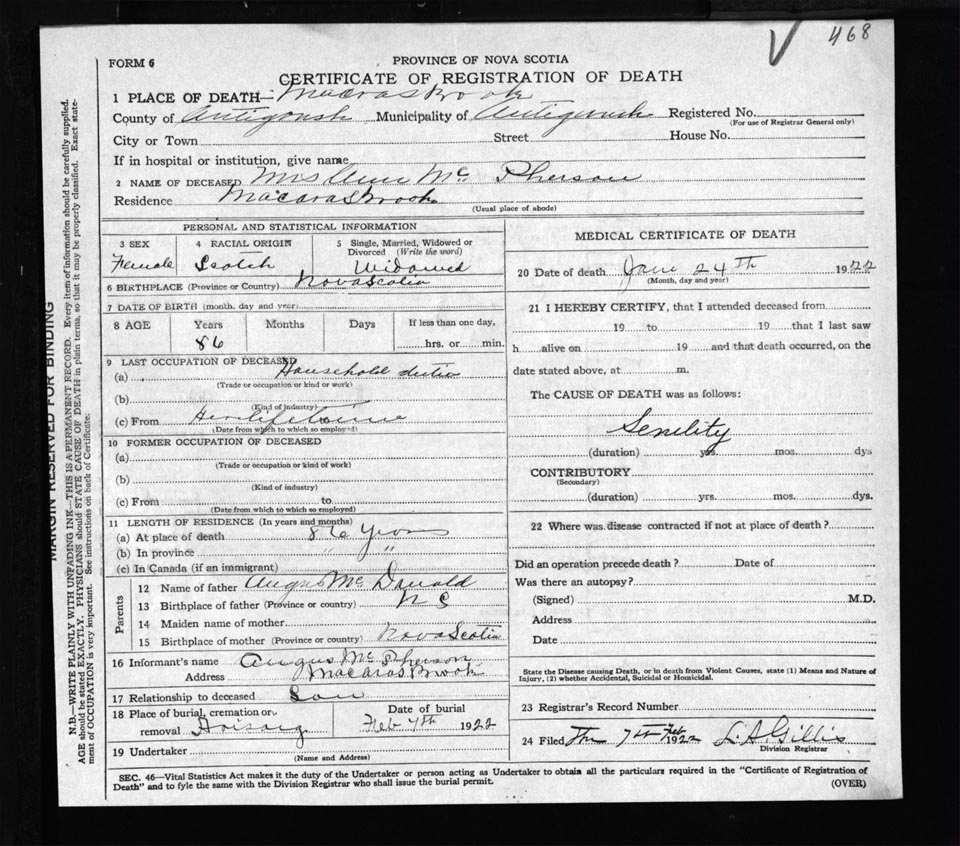 468
FORM 6
PROVINCE OF NOVA SCOTIA
CERTIFICATE OF REGISTRATION OF DEATH
1 PLACE OF DEATH— Macaras Brook
County of Antigonish Municipality of Antigonish Registered No.
(For use of Registrar General only)
City or Town Street House No.
If in hospital or institution, give name
2 NAME OF DECEASED Mrs Ann Mc Pherson
Residence Macaras Brook
(Usual place of abode)
PERSONAL AND STATISTICAL INFORMATION
3 SEX 4 RACIAL ORIGIN 5 Single, Married, Widowed or Divorced (Write the word)
Female Scotch Widowed
6 BIRTHPLACE (Province or Country) Nova Scotia
7 DATE OF BIRTH (month, day and year)
8 AGE Years Months Days If less than one day,
86 hrs. or min.
9 LAST OCCUPATION OF DECEASED
(a) Household duties
(Trade or occupation or kind or work)
(b)
(Kind of industry)
(c) From Her lifetime
(Date from which to which so employed)
10 FORMER OCCUPATION OF DECEASED
(a)
(Trade or occupation or kind of work)
(b)
(Kind of industry)
(c) From to
(Date from which to which so employed)
11 LENGTH OF RESIDENCE (In years and months)
(a) At place of death 86 years
(b) In province " "
(c) In Canada (if an immigrant)
Parents
12 Name of father Angus Mc Donald
13 Birthplace of father (Province or country) N S
14 Maiden name of mother
15 Birthplace of mother (Province or country) Nova Scotia
16 Informant's name Angus Mc Pherson
Address Macaras Brook
17 Relationship to deceased Son
18 Place of burial, cremation or removal Arisaig
Date of burial
Feb 7th 1922
19 Undertaker
(Name and Address)
MEDICAL CERTIFICATE OF DEATH
20 Date of death Jany 24th 1922
(Month, day and year)
21 I HEREBY CERTIFY, that I attended deceased from
19 to 19 that I last saw
h alive on 19 and that death occurred, on the
date stated above, at m.
The CAUSE OF DEATH was as follows:
Senility
(duration) yrs. mos. dys
CONTRIBUTORY
(Secondary)
(duration) yrs. mos. dys.
22 Where was disease contracted if not at place of death?
Did an operation precede death? Date of
Was there an autopsy?
(Signed) M.D.
Address
Date
State the Disease causing Death, or in death from Violent Causes, state (1) Means and Nature of
Injury, (2) whether Accidental, Suicidal or Homicidal.
23 Registrar's Record Number
24 Filed The 7th Feb 1922 L. A. Gillis
Division Registrar
SEC. 46—Vital Statistics Act makes it the duty of the Undertaker or person acting as Undertaker to obtain all the particulars required in the "Certificate of Registration of
Death" and to fyle the same with the Division Registrar who shall issue the burial permit.
(OVER)
MARGIN RESERVED FOR BINDING
N.B.—WRITE PLAINLY WITH UNFADING INK—THIS IS A PERMANENT RECORD. Every item of information should be carefully supplied.
AGE should be stated EXACTLY. PHYSICIANS should STATE CAUSE OF DEATH in plain terms, so that it may be properly classified. Exact state-
ment of OCCUPATION is very important. See instructions on back of Certificate.